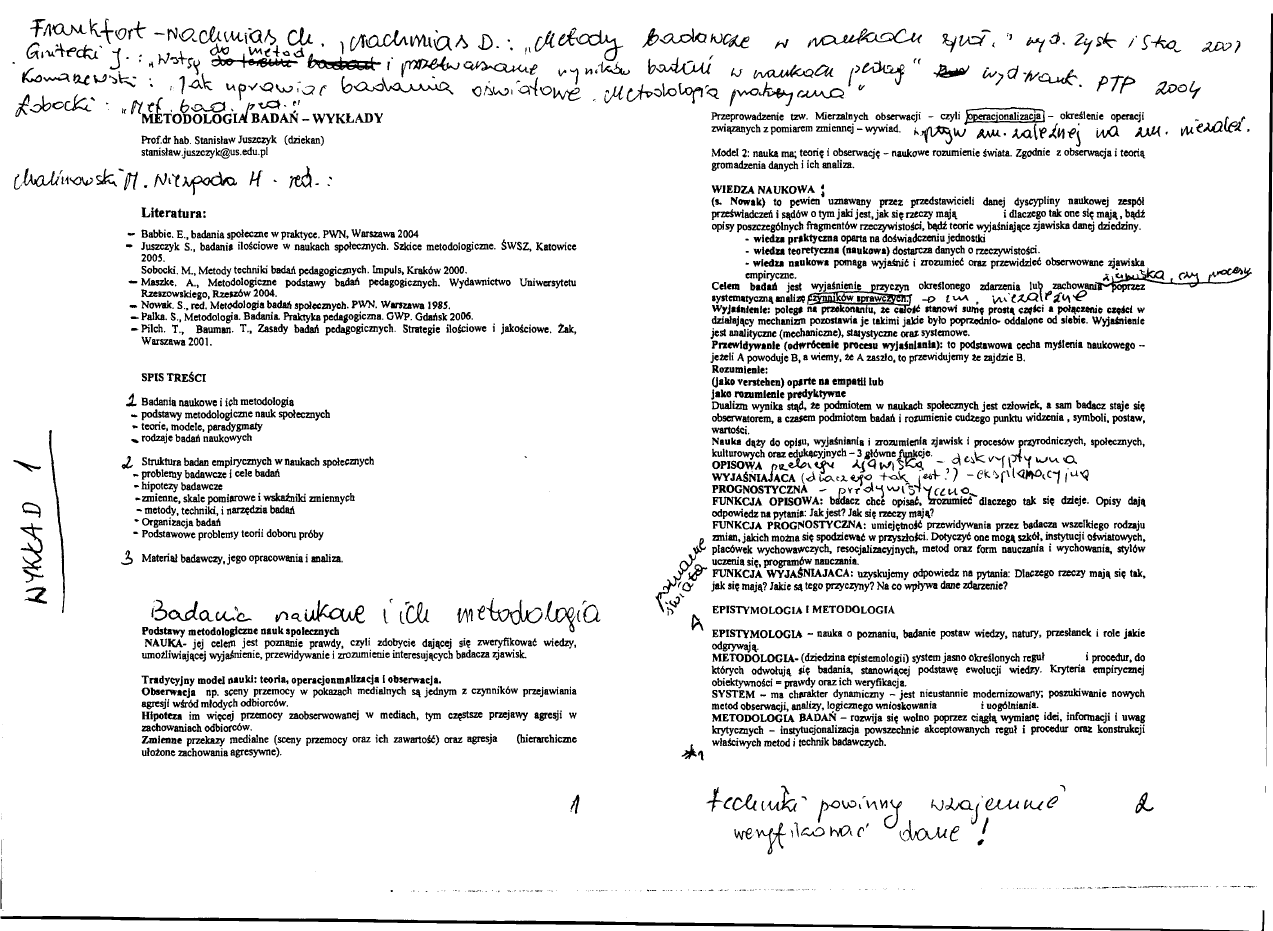 Frankfort-Nachmias Ch., Nachmias D.: „Metody badawcze w naukach społ." wyd. Zysk i Ska 2001
J.: „Wstęp do metod i przetwarzanie wyników badań w naukach pedag"
Komazewski: „Jak uprawiać badania oświatowe. Metodologia praktyczna" wyd nauk. PTP 2004
Łobocki: „Met. bad. ped."
METODOLOGIA BADAŃ – WYKŁADY
Prof.dr hab. Stanisław Juszczyk (dziekan)
stanisław.juszczyk@us.edu.pl
Chalimowski M. Niezpoda H - red.:
Literatura:
– Babbic. E., badania społeczne w praktyce. PWN, Warszawa 2004
– Juszczyk S., badania ilościowe w naukach społecznych. Szkice metodologiczne. ŚWSZ, Katowice
2005.
Sobocki. M., Metody techniki badań pedagogicznych. Impuls, Kraków 2000.
– Maszke. A., Metodologiczne podstawy badań pedagogicznych. Wydawnictwo Uniwersytetu
Rzeszowskiego, Rzeszów 2004.
– Nowak. S., red. Metodologia badań społecznych. PWN. Warszawa 1985.
– Palka. S., Metodologia. Badania. Praktyka pedagogiczna. GWP. Gdańsk 2006.
– Pilch. T., Bauman. T., Zasady badań pedagogicznych. Strategie ilościowe i jakościowe. Żak,
Warszawa 2001.
SPIS TREŚCI
1 Badania naukowe i ich metodologia
– podstawy metodologiczne nauk społecznych
– teorie, modele, paradygmaty
– rodzaje badań naukowych
WYKŁAD 1
2 Struktura badan empirycznych w naukach społecznych
– problemy badawcze i cele badań
– hipotezy badawcze
– zmienne, skale pomiarowe i wskaźniki zmiennych
– metody, techniki, i narzędzia badań
- Organizacja badań
- Podstawowe problemy teorii doboru próby
3 Materiał badawczy, jego opracowania i analiza.
Badania naukowe i ich metodologia
Podstawy metodologiczne nauk społecznych
NAUKA- jej celem jest poznanie prawdy, czyli zdobycie dającej się zweryfikować wiedzy,
umożliwiającej wyjaśnienie, przewidywanie i zrozumienie interesujących badacza zjawisk.
Tradycyjny model nauki: teoria, operacjonmalizacja i obserwacja.
Obserwacja np. sceny przemocy w pokazach medialnych są jednym z czynników przejawiania
agresji wśród młodych odbiorców.
Hipoteza im więcej przemocy zaobserwowanej w mediach, tym częstsze przejawy agresji w
zachowaniach odbiorców.
Zmienne przekazy medialne (sceny przemocy oraz ich zawartość) oraz agresja (hierarchiczne
ułożone zachowania agresywne).
1
Przeprowadzenie tzw. Mierzalnych obserwacji – czyli operacjonalizacja – określenie operacji
związanych z pomiarem zmiennej – wywiad. wpływ zm. zależnej na zm. niezależ.
Model 2: nauka ma; teorię i obserwację – naukowe rozumienie świata. Zgodnie z obserwacja i teorią
gromadzenia danych i ich analiza.
WIEDZA NAUKOWA :
(s. Nowak) to pewien uznawany przez przedstawicieli danej dyscypliny naukowej zespół
przeświadczeń i sądów o tym jaki jest, jak się rzeczy mają i dlaczego tak one się mają , bądź
opisy poszczególnych fragmentów rzeczywistości, bądź teorie wyjaśniające zjawiska danej dziedziny.
- wiedza praktyczna oparta na doświadczeniu jednostki
- wiedza teoretyczna (naukowa) dostarcza danych o rzeczywistości.
- wiedza naukowa pomaga wyjaśnić i zrozumieć oraz przewidzieć obserwowane zjawiska
empiryczne. zjawiska, czy procesy
Celem badań jest wyjaśnienie przyczyn określonego zdarzenia lub zachowania poprzez
systematyczną analizę czynników sprawczych. → zm. niezależne
Wyjaśnienie: polega na przekonaniu, że całość stanowi sumę prostą części a połączenie części w
działający mechanizm pozostawia je takimi jakie było poprzednio- oddalone od siebie. Wyjaśnienie
jest analityczne (mechaniczne), statystyczne oraz systemowe.
Przewidywanie (odwrócenie procesu wyjaśniania): to podstawowa cecha myślenia naukowego –
jeżeli A powoduje B, a wiemy, że A zaszło, to przewidujemy że zajdzie B.
Rozumienie:
(jako verstehen) oparte na empatii lub
jako rozumienie predyktywne
Dualizm wynika stąd, że podmiotem w naukach społecznych jest człowiek, a sam badacz staje się
obserwatorem, a czasem podmiotem badań i rozumienie cudzego punktu widzenia , symboli, postaw,
wartości.
Nauka dąży do opisu, wyjaśniania i zrozumienia zjawisk i procesów przyrodniczych, społecznych,
kulturowych oraz edukacyjnych – 3 główne funkcje.
OPISOWA przebiegu zjawiska – deskryptywna
WYJAŚNIAJĄCA (dlaczego tak jest?) – eksplanacyjna
PROGNOSTYCZNA – predywistyczna
FUNKCJA OPISOWA: badacz chce opisać, zrozumieć dlaczego tak się dzieje. Opisy dają
odpowiedz na pytania: Jak jest? Jak się rzeczy mają?
FUNKCJA PROGNOSTYCZNA: umiejętność przewidywania przez badacza wszelkiego rodzaju
zmian, jakich można się spodziewać w przyszłości. Dotyczyć one mogą szkół, instytucji oświatowych,
placówek wychowawczych, resocjalizacyjnych, metod oraz form nauczania i wychowania, stylów
uczenia się, programów nauczania.
FUNKCJA WYJAŚNIAJACA: uzyskujemy odpowiedz na pytania: Dlaczego rzeczy mają się tak,
jak się mają? Jakie są tego przyczyny? Na co wpływa dane zdarzenie?
poznanie świata
A
EPISTYMOLOGIA I METODOLOGIA
EPISTYMOLOGIA – nauka o poznaniu, badanie postaw wiedzy, natury, przesłanek i role jakie
odgrywają.
METODOLOGIA- (dziedzina epistemologii) system jasno określonych reguł i procedur, do
których odwołują się badania, stanowiącej podstawę ewolucji wiedzy. Kryteria empirycznej
obiektywności = prawdy oraz ich weryfikacja.
SYSTEM – ma charakter dynamiczny – jest nieustannie modernizowany; poszukiwanie nowych
metod obserwacji, analizy, logicznego wnioskowania i uogólniania.
METODOLOGIA BADAŃ – rozwija się wolno poprzez ciągłą wymianę idei, informacji i uwag
krytycznych – instytucjonalizacja powszechnie akceptowanych reguł i procedur oraz konstrukcji
właściwych metod i technik badawczych.
*1
techniki powinny wzajemnie
weryfikować dane!
2